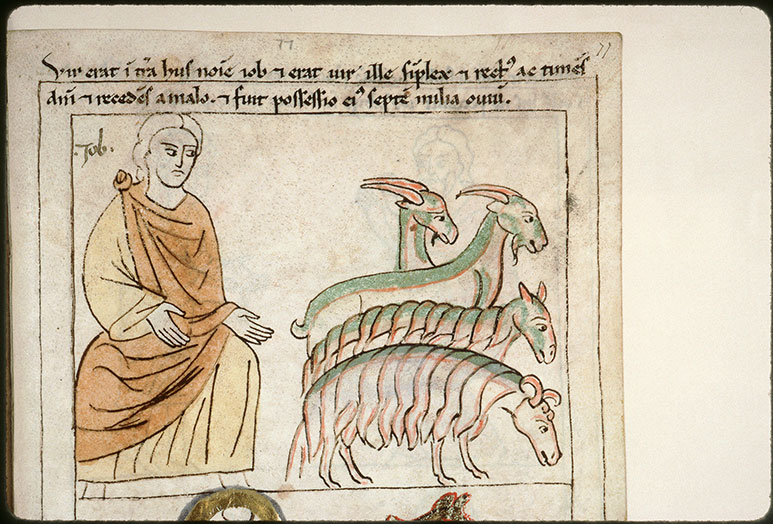 Vir erat i tra hus noie iob ⁊ erat uir ille siplex ⁊ rectꝰ ac times
dm ⁊ recedes a malo. ⁊ fuit possessio eiꝰ septe milia ouiu.
·Job·